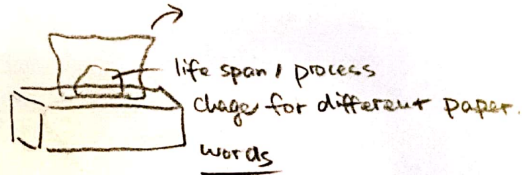 life span / process
chage for different paper.
words